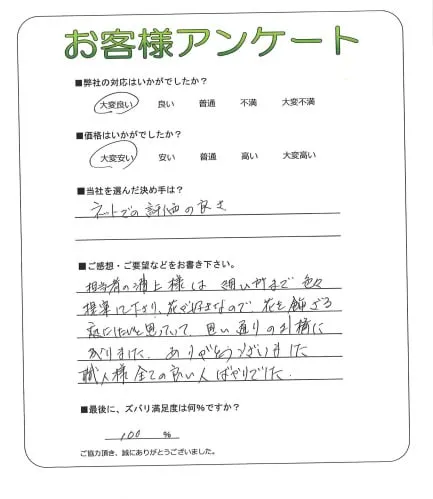 お客様アンケート
■弊社の対応はいかがでしたか?
大変良い 良い 普通 不満 大変不満
■価格はいかがでしたか?
大変安い 安い 普通 高い 大変高い
■当社を選んだ決め手は?
ネットでの評価の良さ
■ご感想・ご要望などをお書き下さい。
担当者の浦上様は 細い所まで 色々
提案して下さり、花が好きなので 花を飾る
庭にしたいと思っていて 思い通りのお庭に
なりました。ありがとうございました
職人様全ての良い人ばかりでした。
■最後に、ズバリ満足度は何%ですか?
100 %
ご協力頂き、誠にありがとうございました。